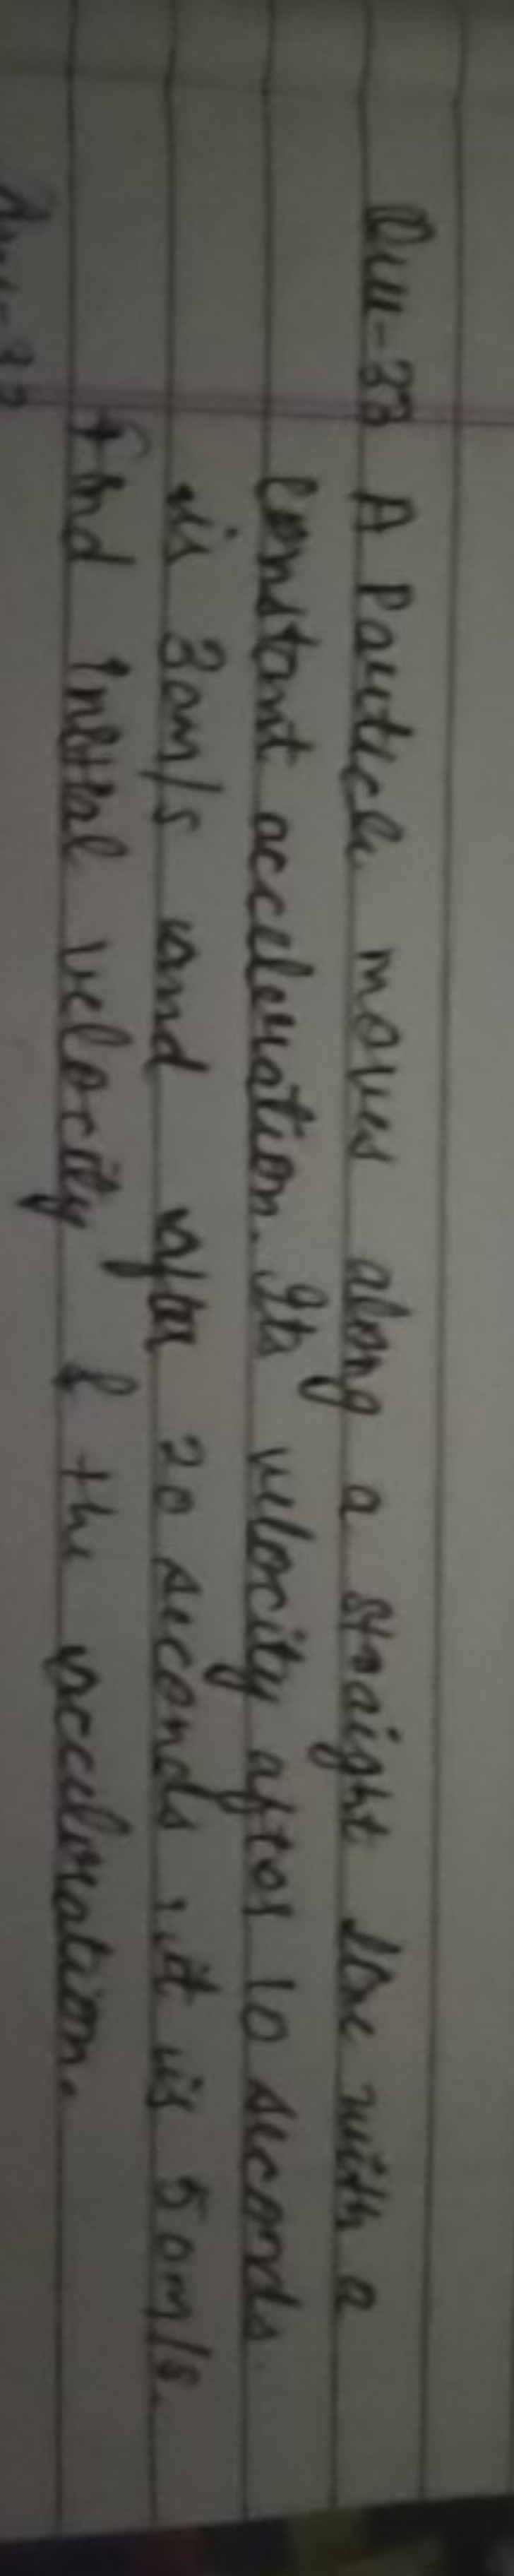 Que-33 A Particle moves along a straight line with a
constant acceleration. Its velocity after 10 seconds
is 30m/s and after 20 seconds, it is 50m/s.
find initial velocity & the acceleration.